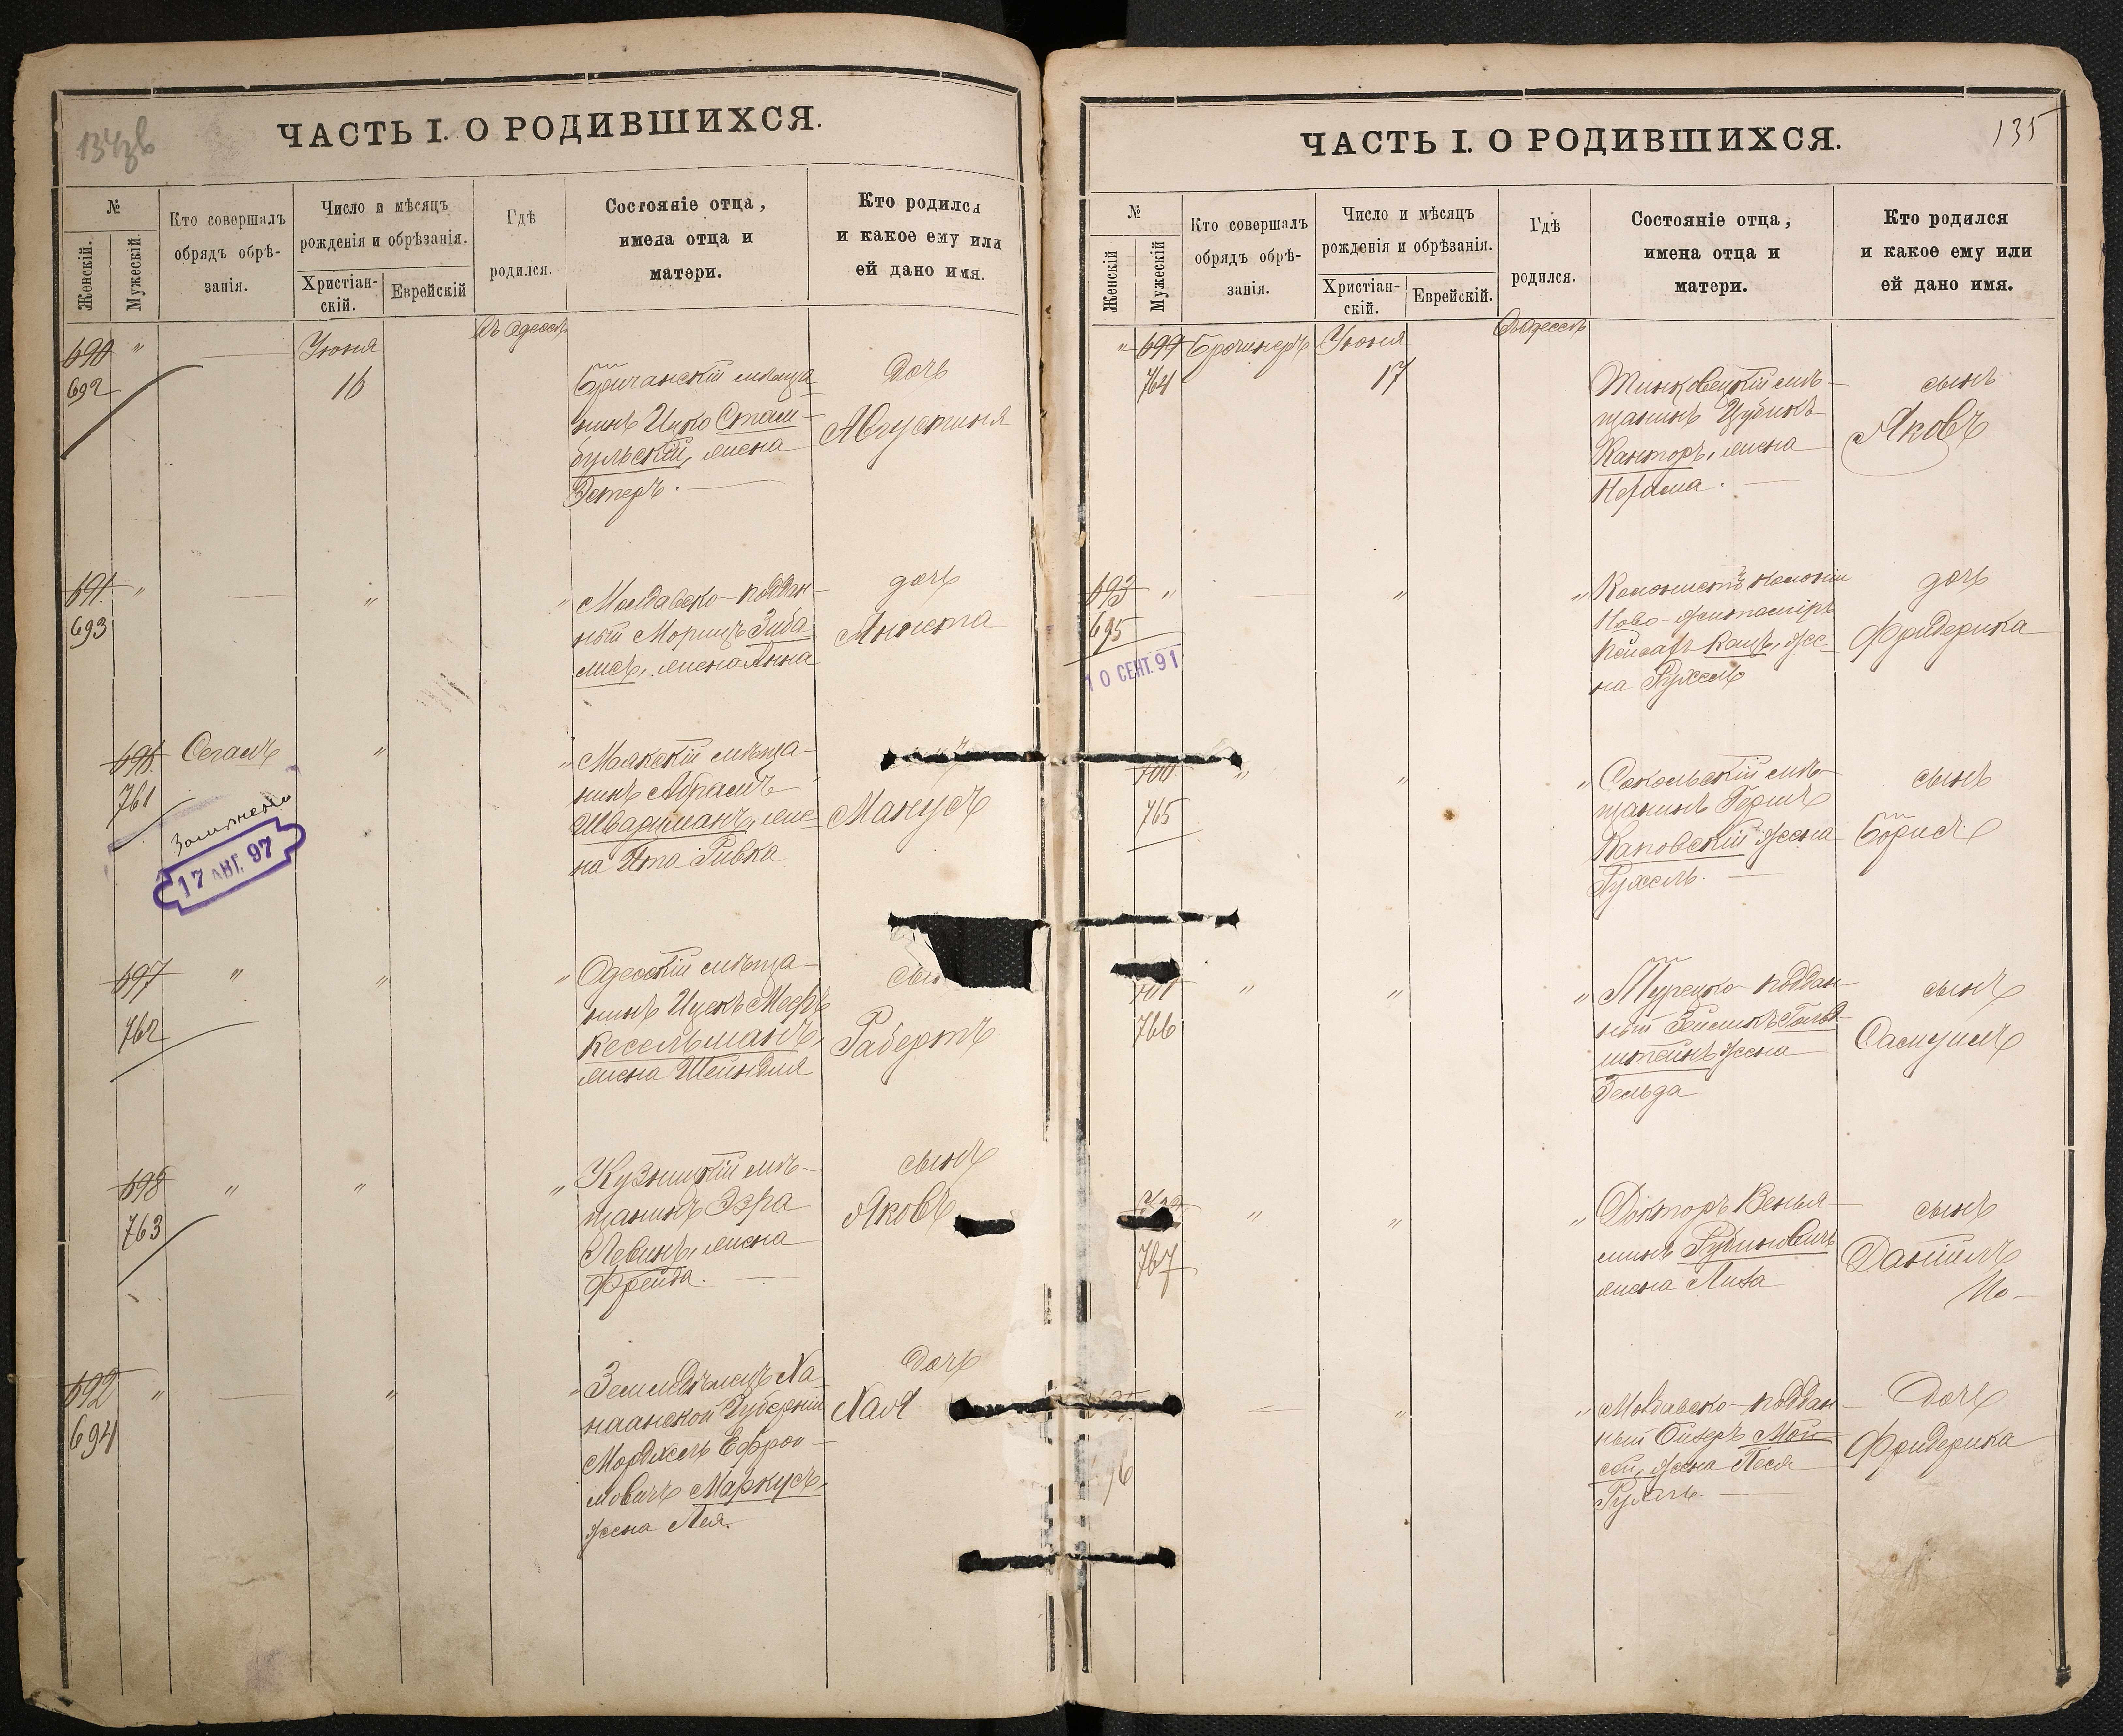 ЧАСТЬ I. О РОДИВШИХСЯ.
№
Женскій.
Мужескій
Кто совершалъ
обрядъ обрѣ-
занія.
Число и мѣсяцъ
рожденія и обрѣзанія.
Христіан-
скій.
Еврейскій
Гдѣ
родился.
Состояніе отца,
имена отца и
матери.
Кто родился
и какое ему или
ей дано имя.
690 "
692
Июня
16
Въ Одессѣ
Бричанскій мѣща-
нинъ Ицко Стам-
бульскій, жена
Эстеръ.
Дочь
Августина
691. "
693
"
"
Молдавско-поддан-
ный Морицъ Зиба-
лисъ, жена Анна
дочь
Анжета
696.
761
Сегалъ
"
"
Маякскій мѣща-
нинъ Абрамъ
Шварцманъ, же-
на Ита Ривка
Манусъ
17 АВГ. 97
697
762
"
"
"
Одесскій мѣща-
нинъ Ицекъ Мееръ
Кесельманъ,
жена Шейндля
сы
Рабертъ
698
763
"
"
"
Кузницкій мѣ-
щанинъ Эзра
Левинъ, жена
Фрейда.
сынъ
Яковъ
692 "
694
"
"
Земледѣлецъ
Губерніи
Мордхель Ефрои-
мовичъ Маркусъ,
жена Лея.
дочь
ЧАСТЬ I. О РОДИВШИХСЯ.
135
№
Женскій
Мужескій
Кто совершалъ
обрядъ обрѣ-
занія.
Число и мѣсяцъ
рожденія и обрѣзанія.
Христіан-
скій.
Еврейскій.
Гдѣ
родился.
Состояніе отца,
имена отца и
матери.
Кто родился
и какое ему или
ей дано имя.
" 699
764
Брочинеръ
Июня
17
Въ Одессѣ
Тинковецкій мѣ-
щанинъ Цудикъ
Канторъ, жена
сынъ
Яковъ
693 "
695
10 СЕНТ. 91
"
"
Колонистъ колоніи
Ново-Житоміръ
Кацъ, же-
на Рухель
дочь
Фридерика
700
765
"
"
"
Сокольскій мѣ-
щанинъ Гершъ
Каповскій жена
Рухель.
сынъ
Борисъ
701
766
"
"
"
Турецко-поддан-
ный Зейликъ Гольд-
штейнъ жена
Зельда
сынъ
Самуилъ
767
"
"
"
Докторъ Венья-
минъ Рубиновичъ
жена Лиза
сынъ
Даніилъ
"
"
Молдавско-поддан-
ный Ойзеръ Мой-
сей, жена Песя
Рухль.
Дочь
Фридерика